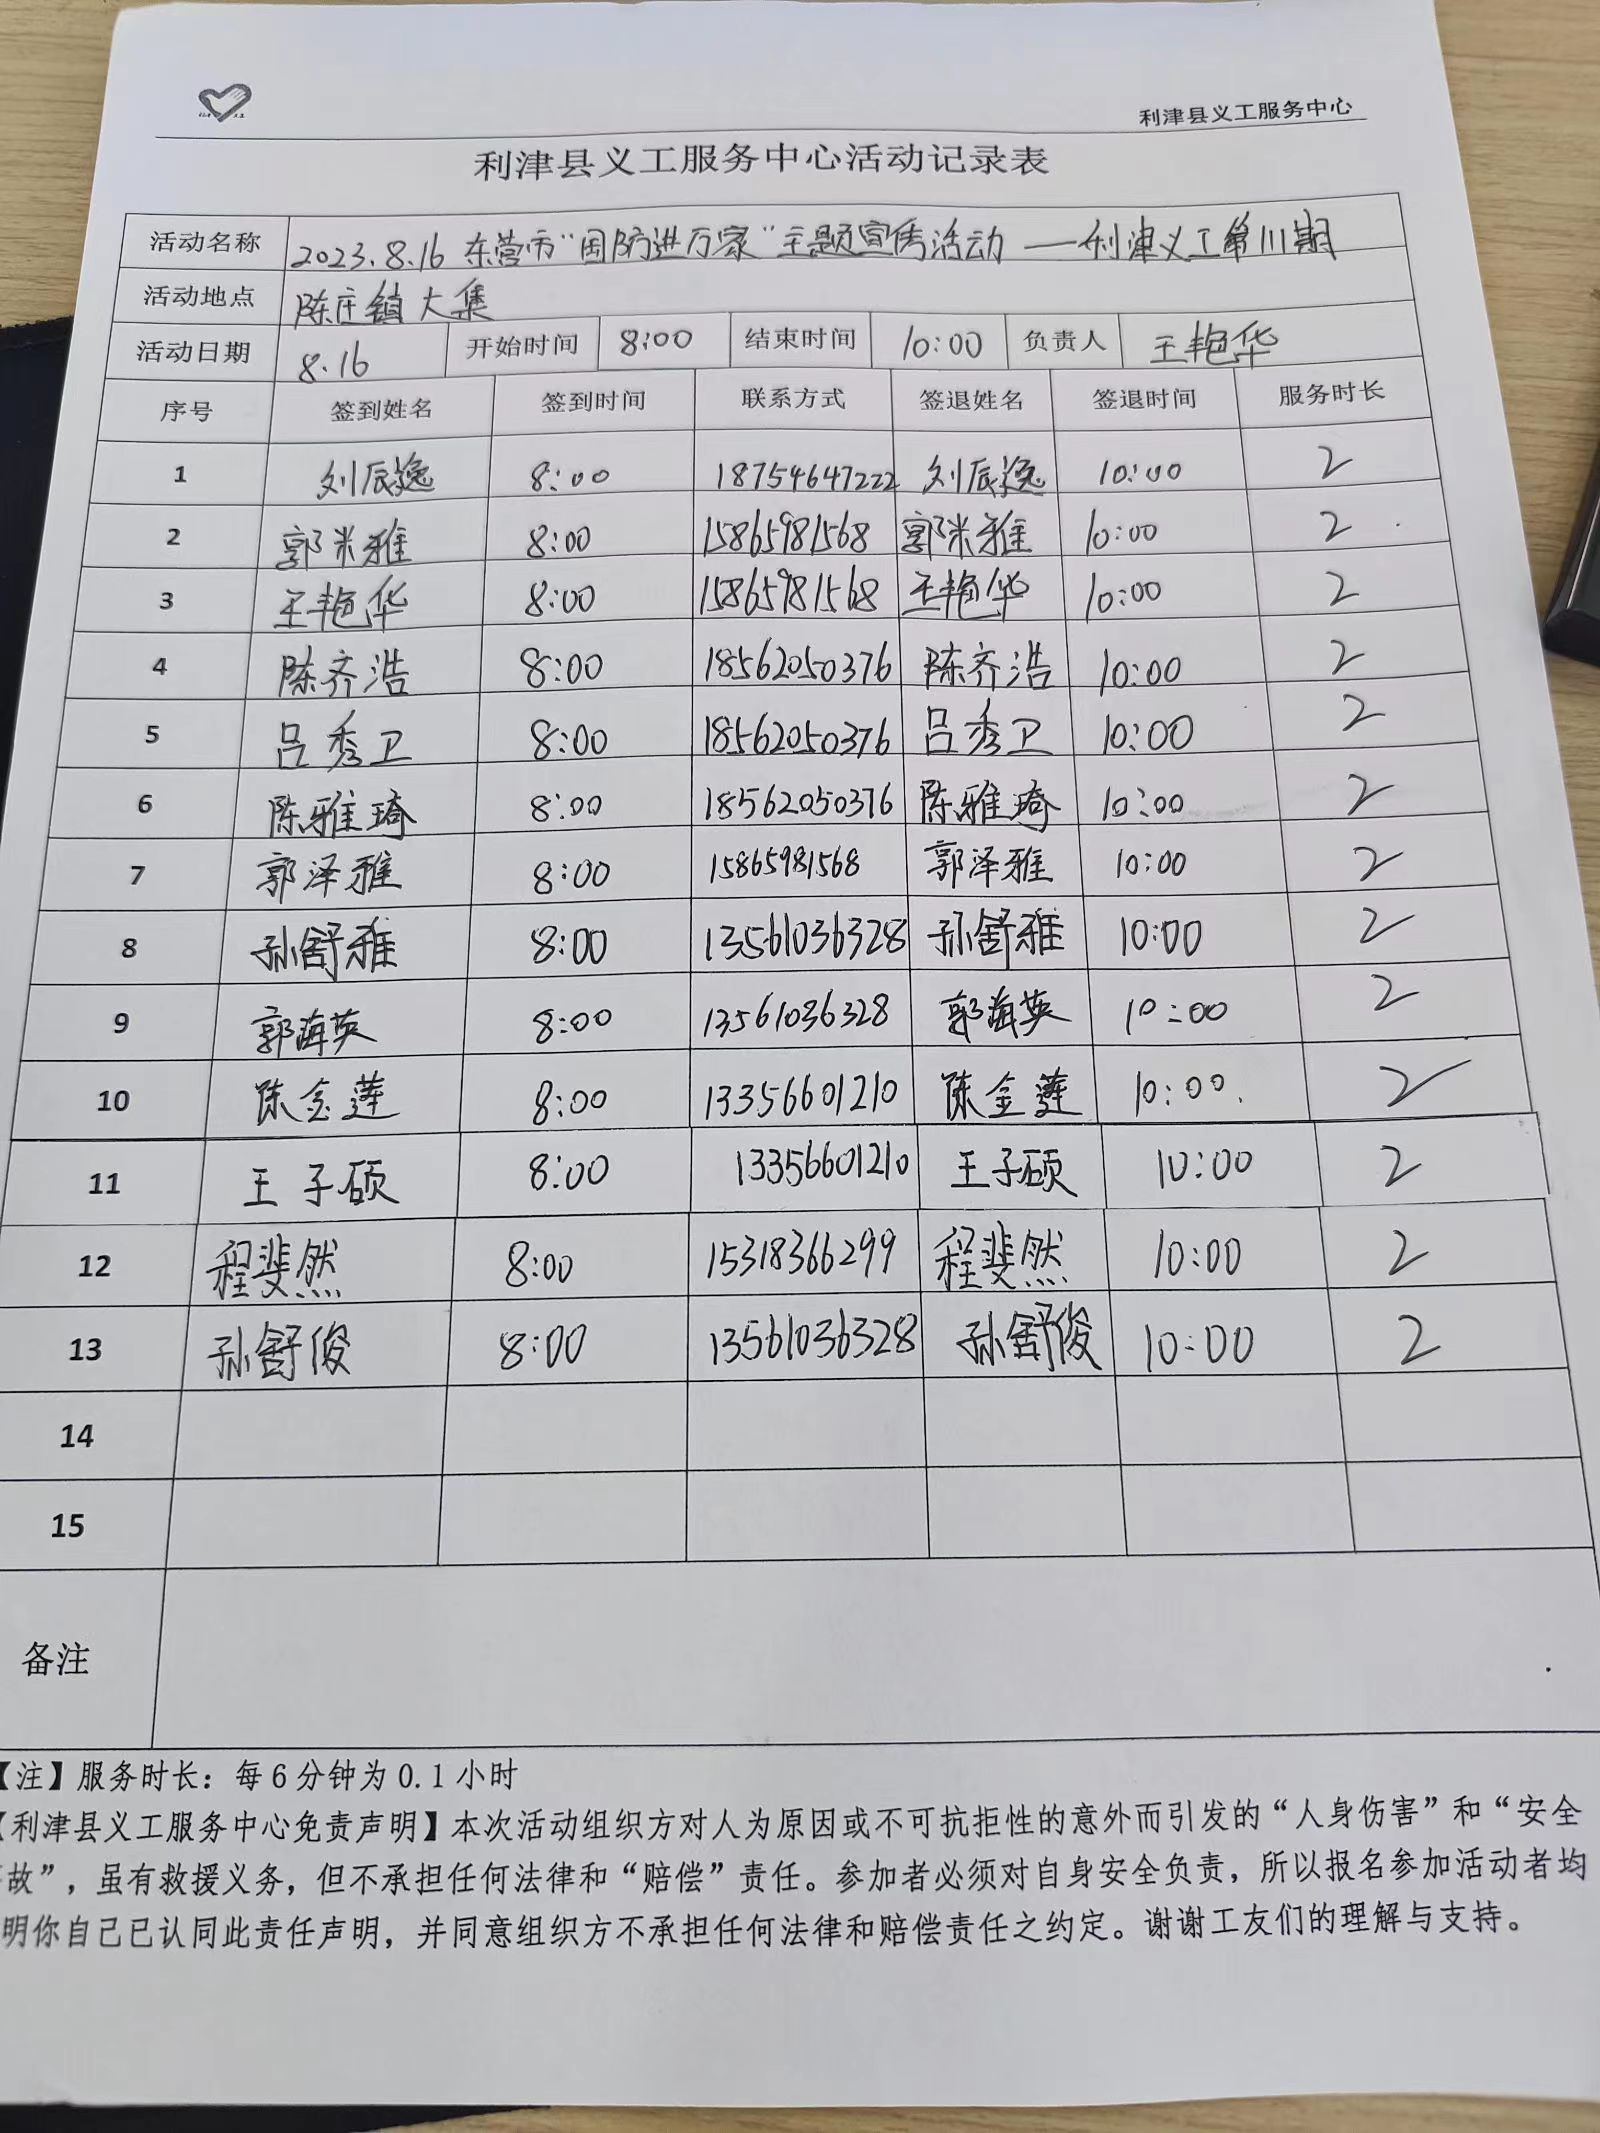 利津县义工服务中心
利津县义工服务中心活动记录表
活动名称 2023.8.16 东营市“国防进万家”主题宣传活动——利津义工第111期
活动地点 陈庄镇大集
活动日期 8.16 开始时间 8:00 结束时间 10:00 负责人 王艳华
序号 签到姓名 签到时间 联系方式 签退姓名 签退时间 服务时长
1 刘辰逸 8:00 18754647222 刘辰逸 10:00 2
2 郭米雅 8:00 15865981568 郭米雅 10:00 2
3 王艳华 8:00 15865981568 王艳华 10:00 2
4 陈齐浩 8:00 18562050376 陈齐浩 10:00 2
5 吕秀卫 8:00 18562050376 吕秀卫 10:00 2
6 陈雅琦 8:00 18562050376 陈雅琦 10:00 2
7 郭泽雅 8:00 15865981568 郭泽雅 10:00 2
8 孙舒雅 8:00 13561036328 孙舒雅 10:00 2
9 郭海英 8:00 13561036328 郭海英 10:00 2
10 陈金莲 8:00 13356601210 陈金莲 10:00. 2
11 王子硕 8:00 13356601210 王子硕 10:00 2
12 程斐然 8:00 15318366299 程斐然 10:00 2
13 孙舒俊 8:00 13561036328 孙舒俊 10:00 2
14
15
备注
【注】服务时长：每6分钟为0.1小时
【利津县义工服务中心免责声明】本次活动组织方对人为原因或不可抗拒性的意外而引发的“人身伤害”和“安全
故”，虽有救援义务，但不承担任何法律和“赔偿”责任。参加者必须对自身安全负责，所以报名参加活动者均
明你自己已认同此责任声明，并同意组织方不承担任何法律和赔偿责任之约定。谢谢工友们的理解与支持。